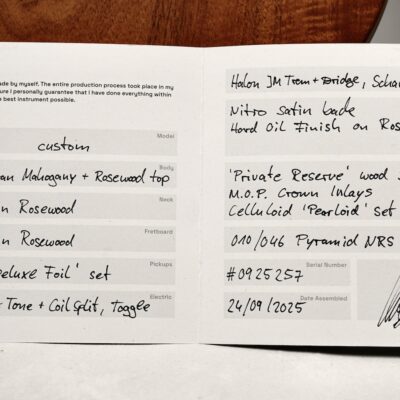 de by myself. The entire production process took place in my
ure I personally guarantee that I have done everything within
e best instrument possible.
Model
custom
Body
an Mahogany + Rosewood top
Neck
n Rosewood
Fretboard
n Rosewood
Pickups
eluxe Foil' set
Electric
Tone + Coil Split, Toggle
Halon JM Trem + Bridge, Scha
Nitro Satin back
Hard Oil Finish on Ros
'Private Reserve' wood
M.O.P. Crown Inlays
Celluloid 'Pearloid' Set
010/046 Pyramid NRS
Serial Number
#0925257
Date Assembled
24/09/2025